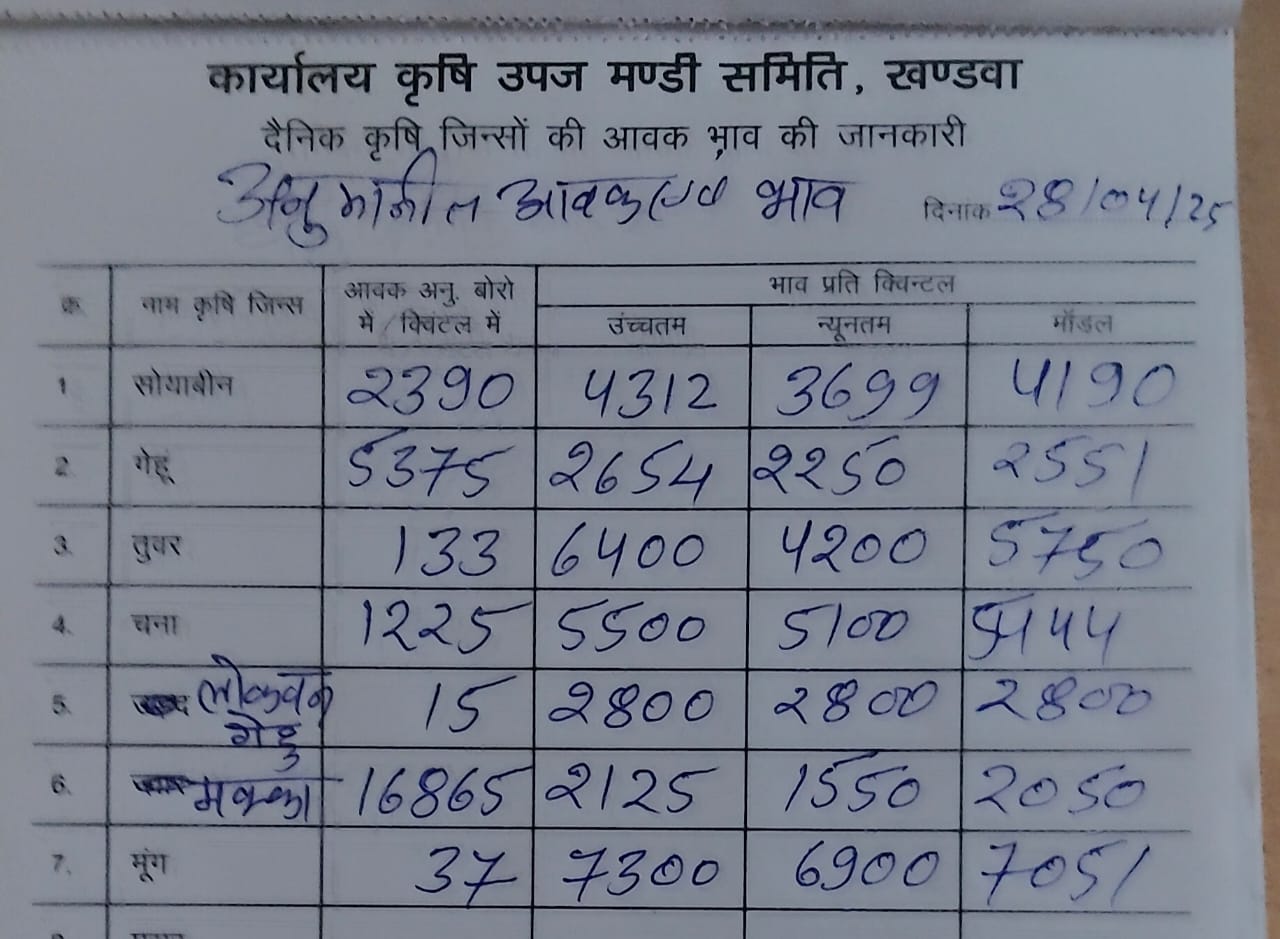 कार्यालय कृषि उपज मण्डी समिति, खण्डवा
दैनिक कृषि जिन्सों की आवक भाव की जानकारी
अनुमानीत आवक एवं भाव दिनांक 28/04/25
क्र. नाम कृषि जिन्स आवक अनु. बोरो में / क्विंटल में भाव प्रति क्विन्टल
उंच्चतम न्यूनतम मॉडल
1 सोयाबीन 2390 4312 3699 4190
2. गेहूं 5375 2654 2250 2551
3. तुवर 133 6400 4200 5750
4. चना 1225 5500 5100 5444
5. लोकवन गेहु 15 2800 2800 2800
6. मक्का 16865 2125 1550 2050
7. मूंग 37 7300 6900 7051